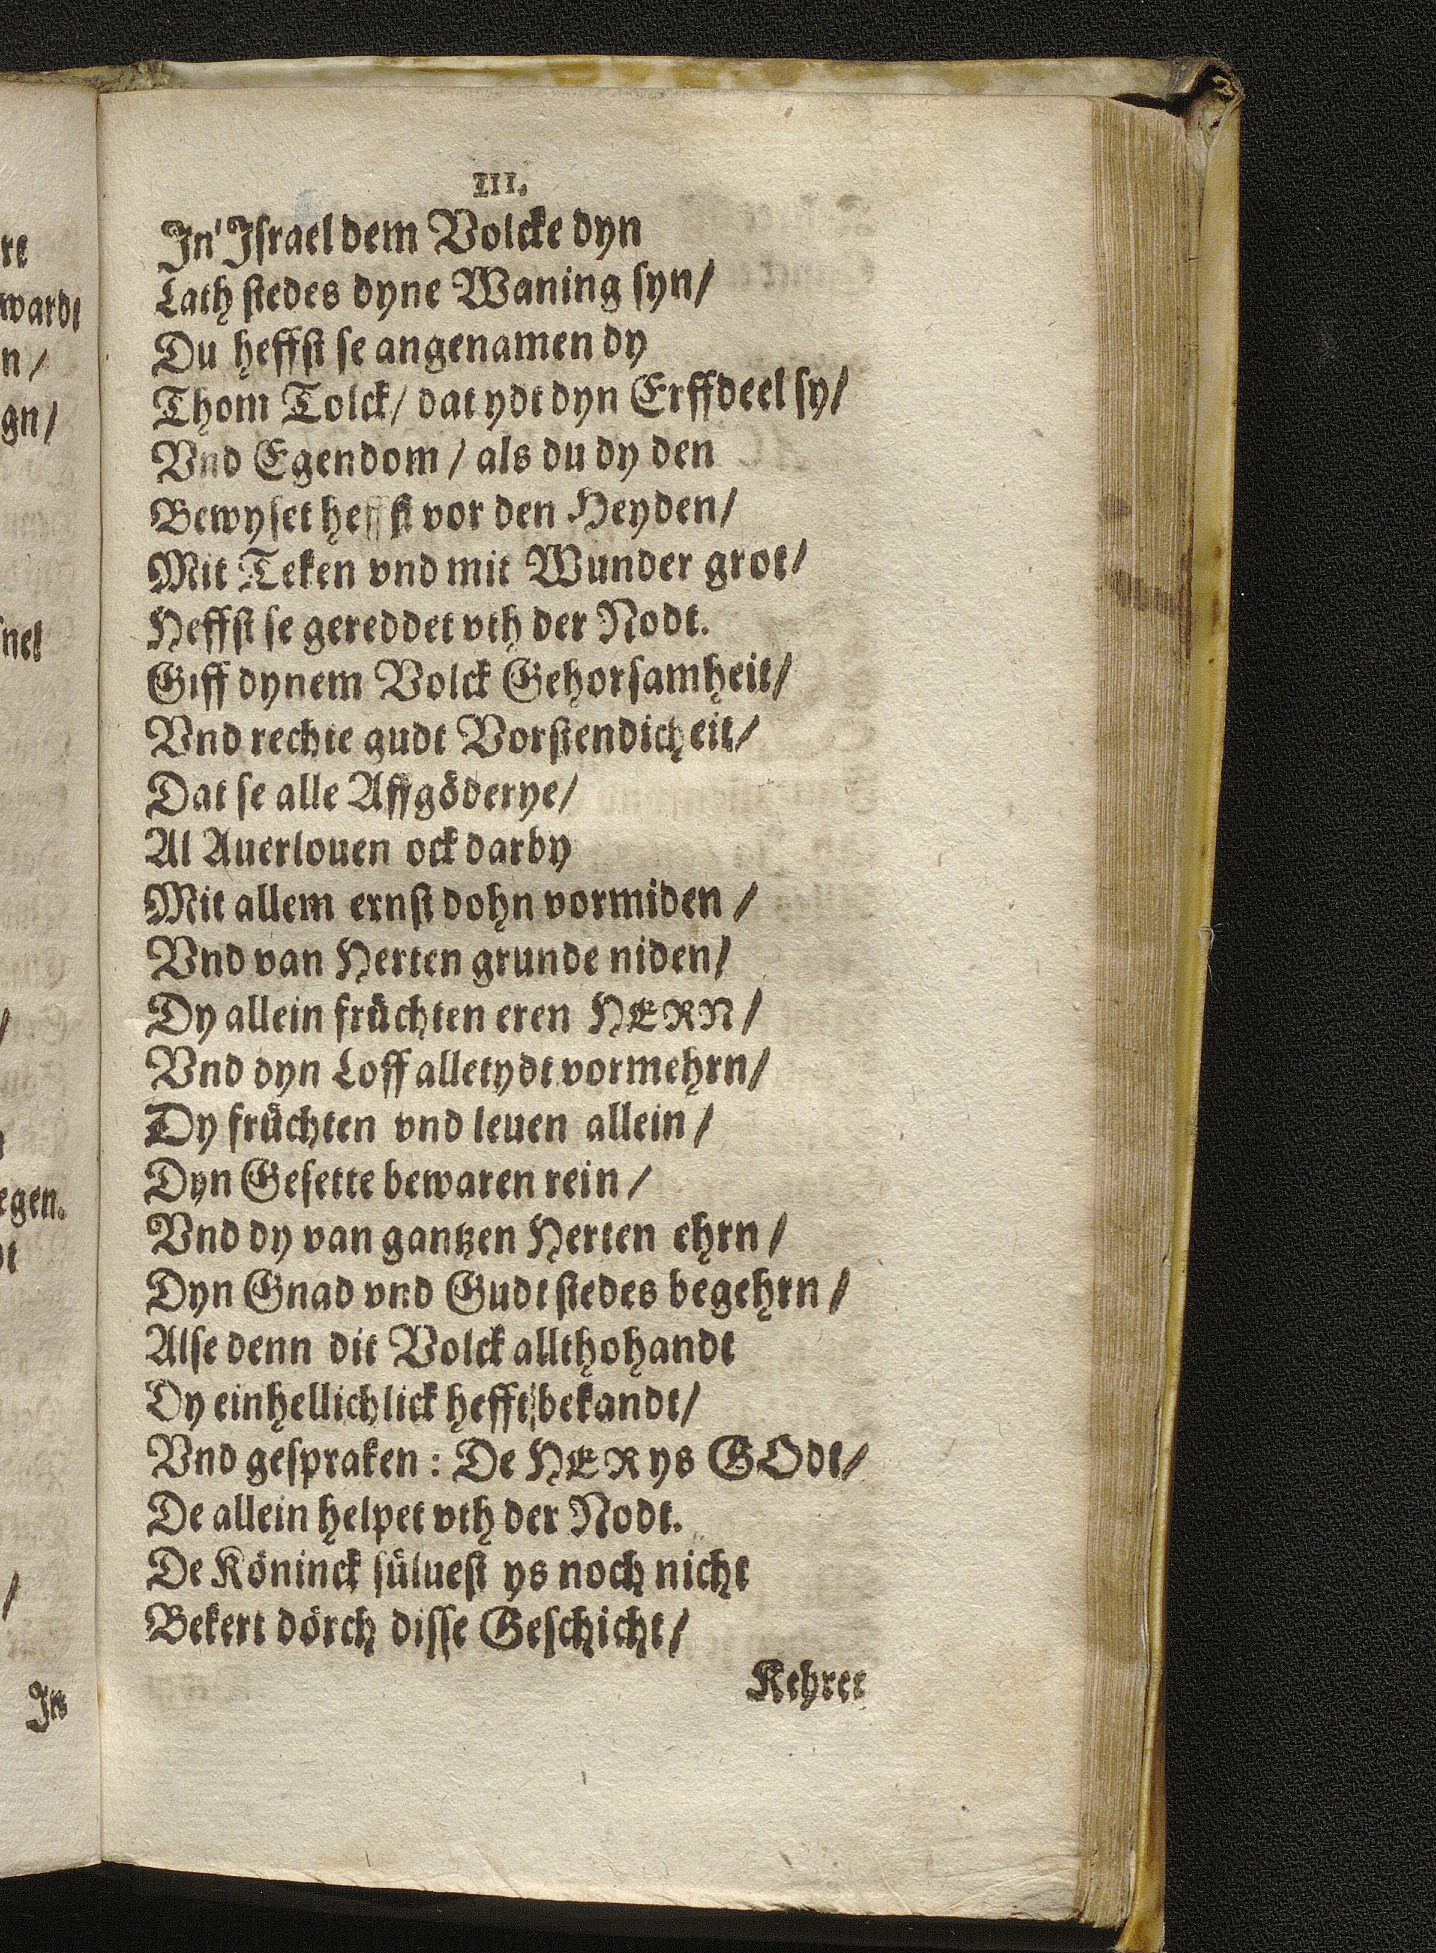 III.
In' Israel dem Volcke dyn
Lath stedes dyne Waning syn/
Du heffst se angenamen dy
Thom Tolck/ dat ydt dyn Erffdeel sy/
Vnd Egendom / als du dy den
Bewyset heffst vor den Heyden/
Mit Teken vnd mit Wunder grot/
Heffst se gereddet vth der Nodt.
Giff dynem Volck Gehorsamheit/
Vnd rechte gudt Vorstendicheit/
Dat se alle Affgöderye/
Al Auerlouen ock darby
Mit allem ernst dohn vormiden /
Vnd van Herten grunde niden/
Dy allein früchten eren HERN/
Vnd dyn Loff alletydt vormehrn/
Dy früchten vnd leuen allein/
Dyn Gesette bewaren rein /
Vnd dy van gantzen Herten ehrn /
Dyn Gnad vnd Gudt stedes begehrn /
Alse denn dit Volck allthohandt
Dy einhellichlick hefft bekandt/
Vnd gespraken : De HER ys GOdt/
De allein helpet vth der Nodt.
De Köninck süluest ys noch nicht
Bekert dörch disse Geschicht/
Kehret